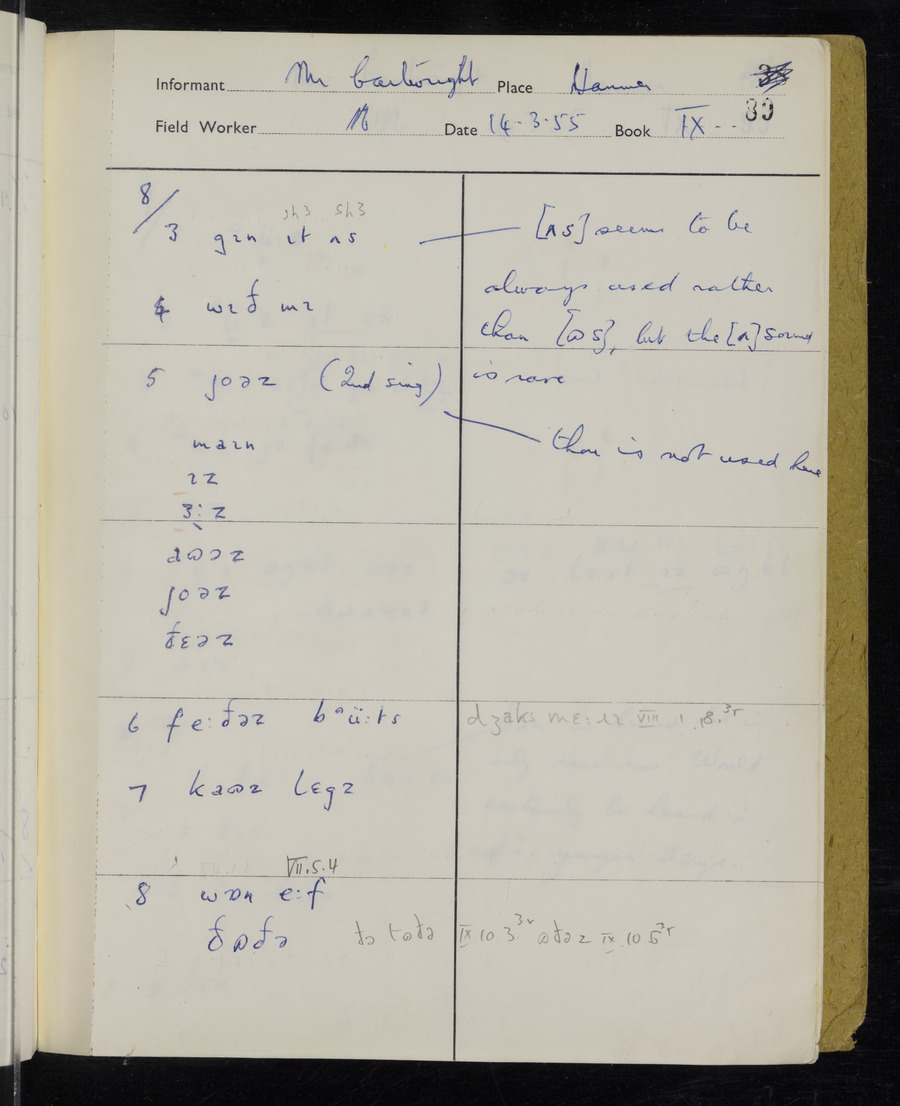 Informant Mr Cartwright Place Hanmer
39
Field Worker Date 14-3-55 Book IX
8/
sh3 sh3
3 gɪn ɪt ʌs [ʌs] seems to be
always used rather
4 wɪð mɪ than [ɷs], but the [ʌ] sound
is rare
5 joəz (2nd sing)
thou is not used here
maɪn
ɪz
ɜ:z
aɷəz
joəz
ðɛəz
6 fe:ðəz bᵊü:ts dʒaks mɛ:ɪz VIII 1 18.3r
7 kaɷz lɛgz
VII.5.4
8 wɒn e:f
ðɷðə ðə tɷðə IX 10 3 3r ɷðəz IX 10 5 3r